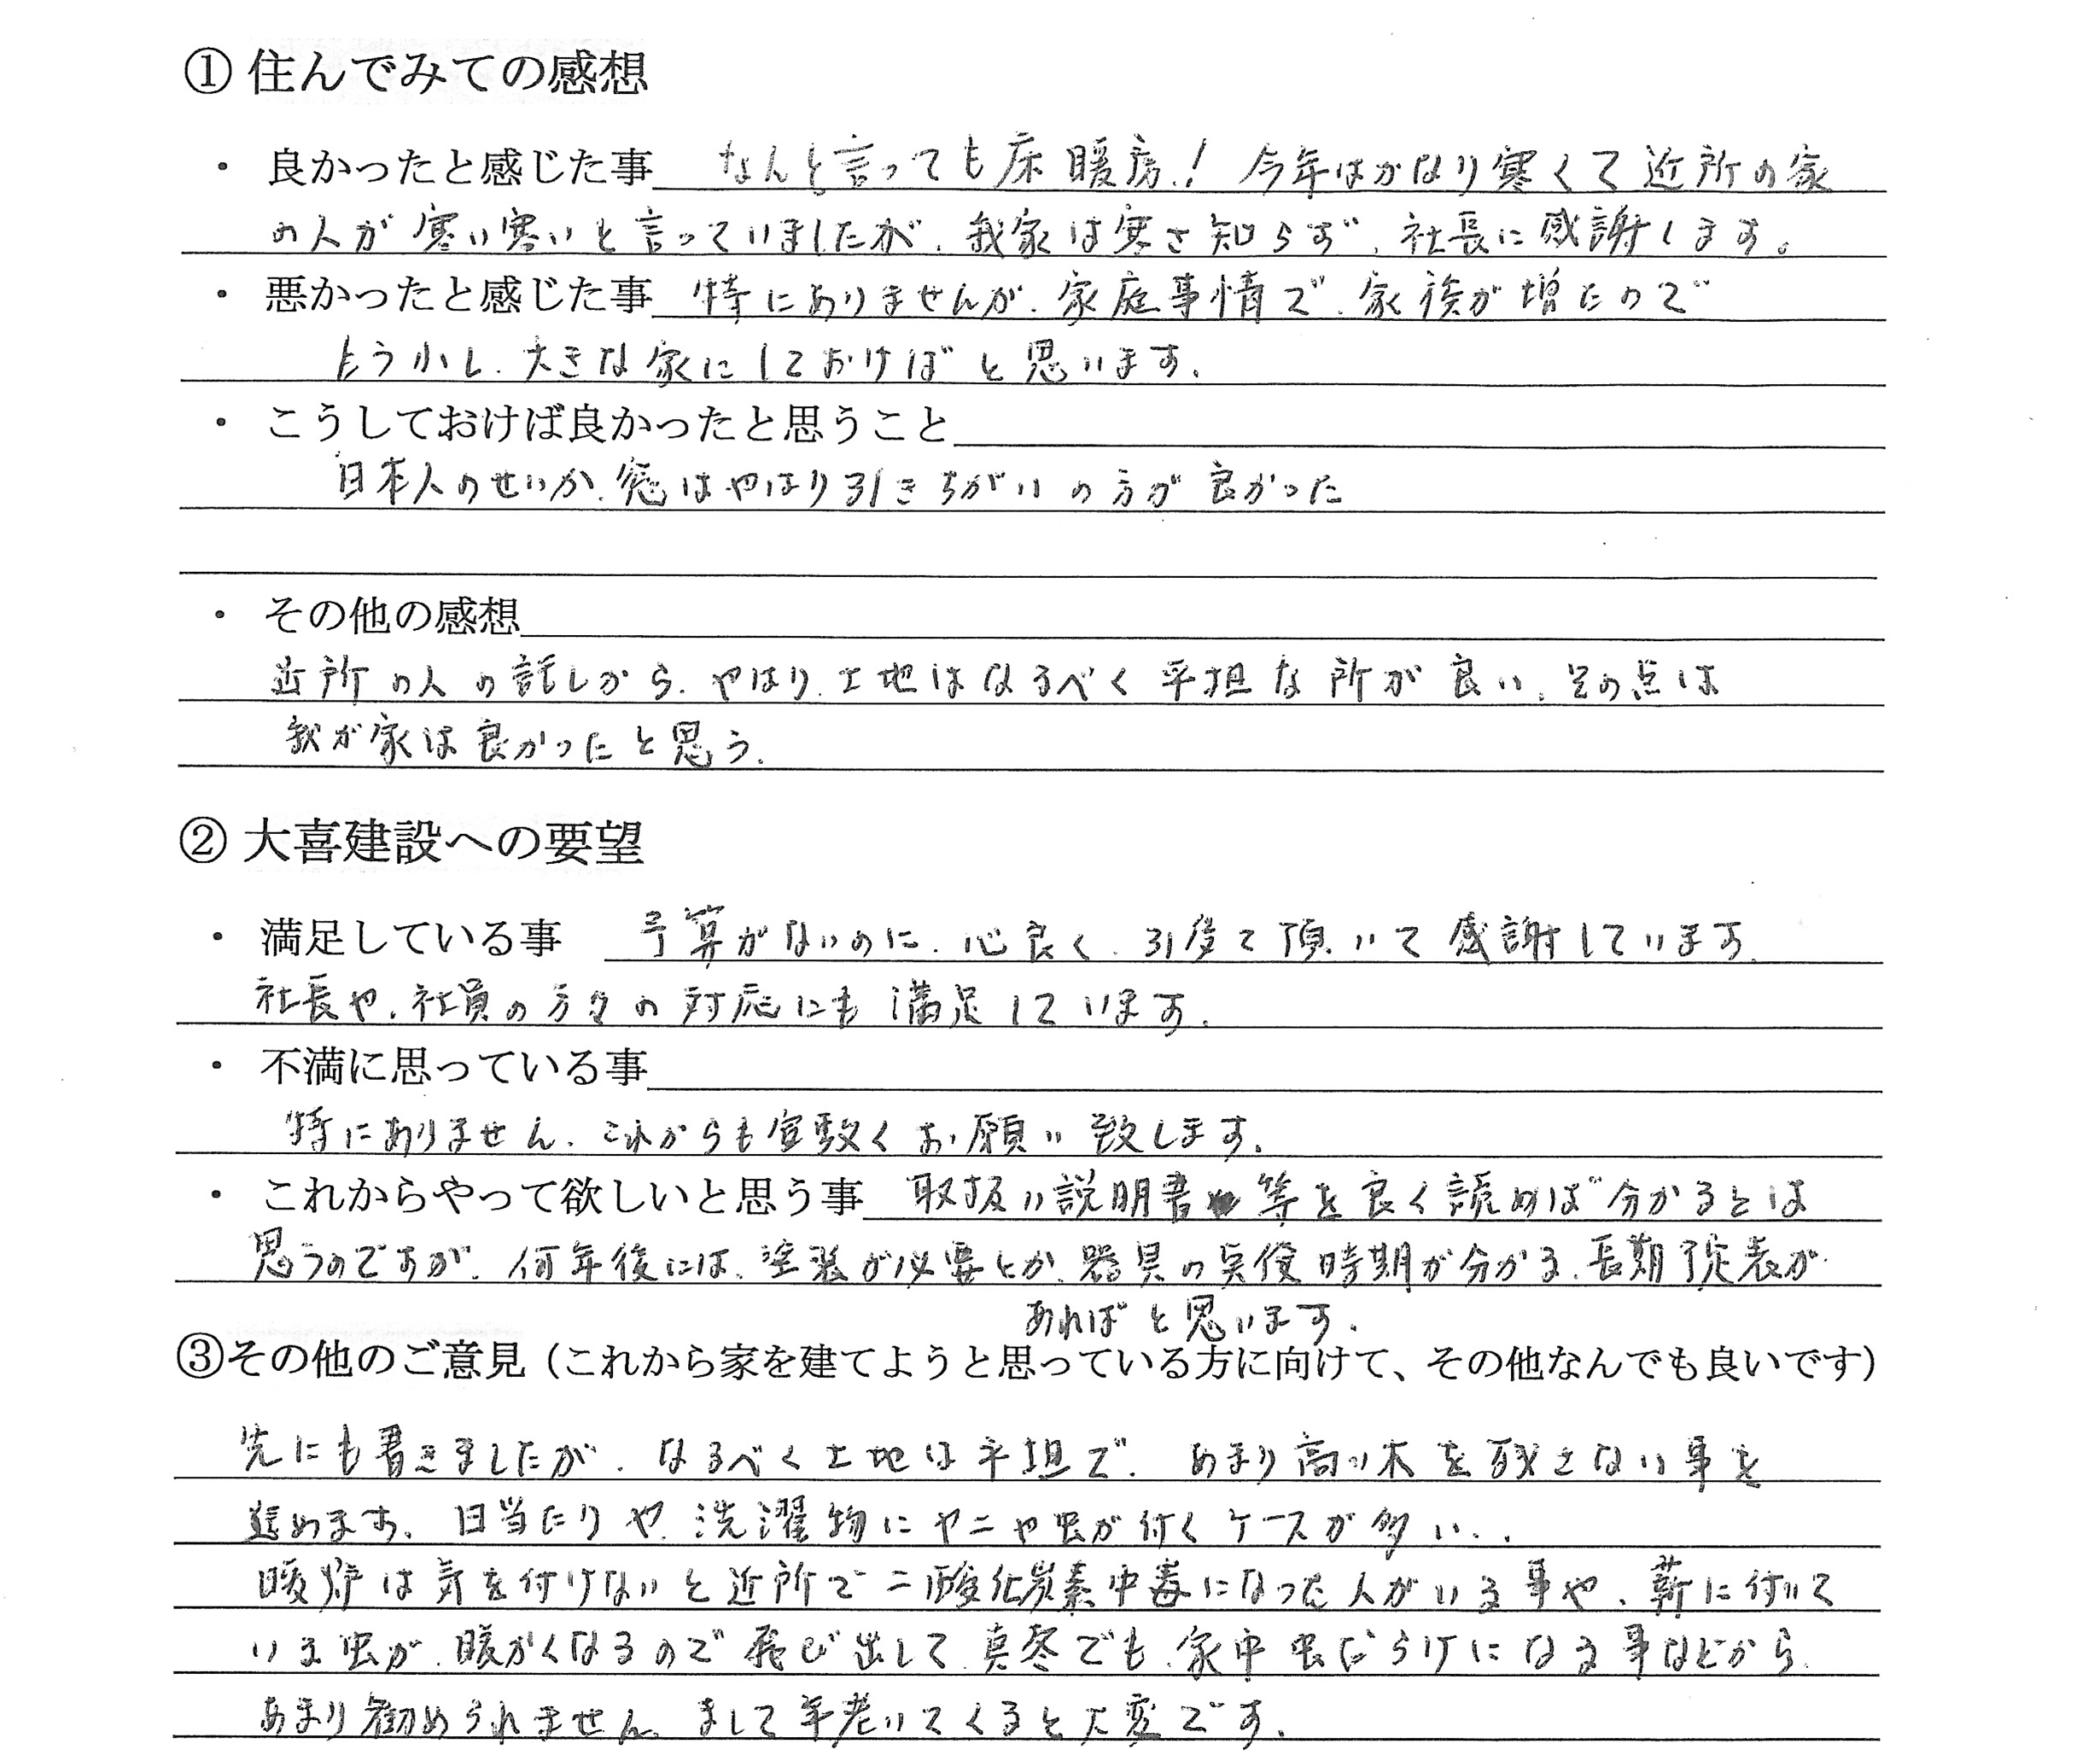 ① 住んでみての感想
・ 良かったと感じた事 なんと言っても床暖房！ 今年はかなり寒くて近所の家
の人が寒い寒いと言っていましたが、我家は寒さ知らず、社長に感謝します。
・ 悪かったと感じた事 特にありませんが、家庭事情で、家族が増たので
もう少し、大きな家にしておけばと思います。
・ こうしておけば良かったと思うこと
日本人のせいか、窓はやはり引きちがいの方が良かった
・ その他の感想
近所の人の話しから、やはり、土地はなるべく平担な所が良い、その点は
我が家は良かったと思う。
② 大喜建設への要望
・ 満足している事 予算がないのに、心良く、引度て頂いて感謝しています。
社長や、社員の方々の対応にも満足しています。
・ 不満に思っている事
特にありません、これからも宜敷くお願い致します。
・ これからやって欲しいと思う事 取扱い説明書等を良く読めば分かるとは
思うのですが、何年後には、塗装が必要とか、器具の交換時期が分かる、長期予定表が
あればと思います。
③その他のご意見（これから家を建てようと思っている方に向けて、その他なんでも良いです）
先にも書きましたが、なるべく土地は平担で、あまり高い木を残さない事を
進めます。日当たりや、洗濯物にヤニや虫が付くケースが多い、、
暖炉は気を付けないと近所で二酸化炭素中毒になった人がいる事や、薪に付いて
いる虫が、暖かくなるので飛び出して、真冬でも、家中虫だらけになる事などから、
あまり勧められません。まして年老いてくると大変です。